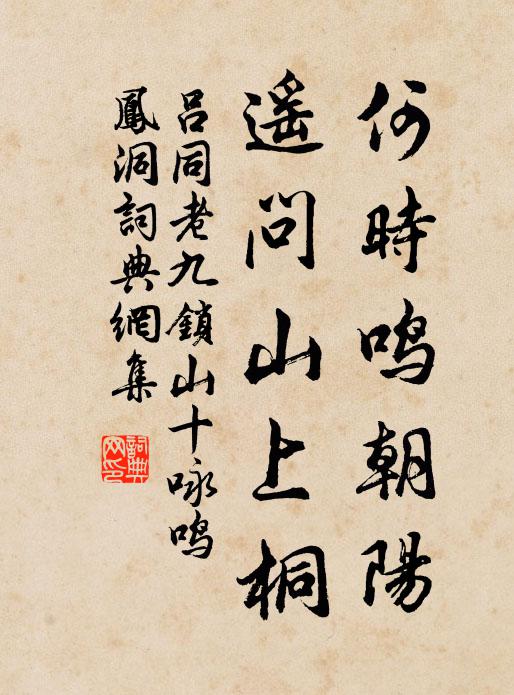 何時鸣朝陽
遥問山上桐
吕同老九鎖山十咏鸣
鳳洞詞典網集
詞典
网印